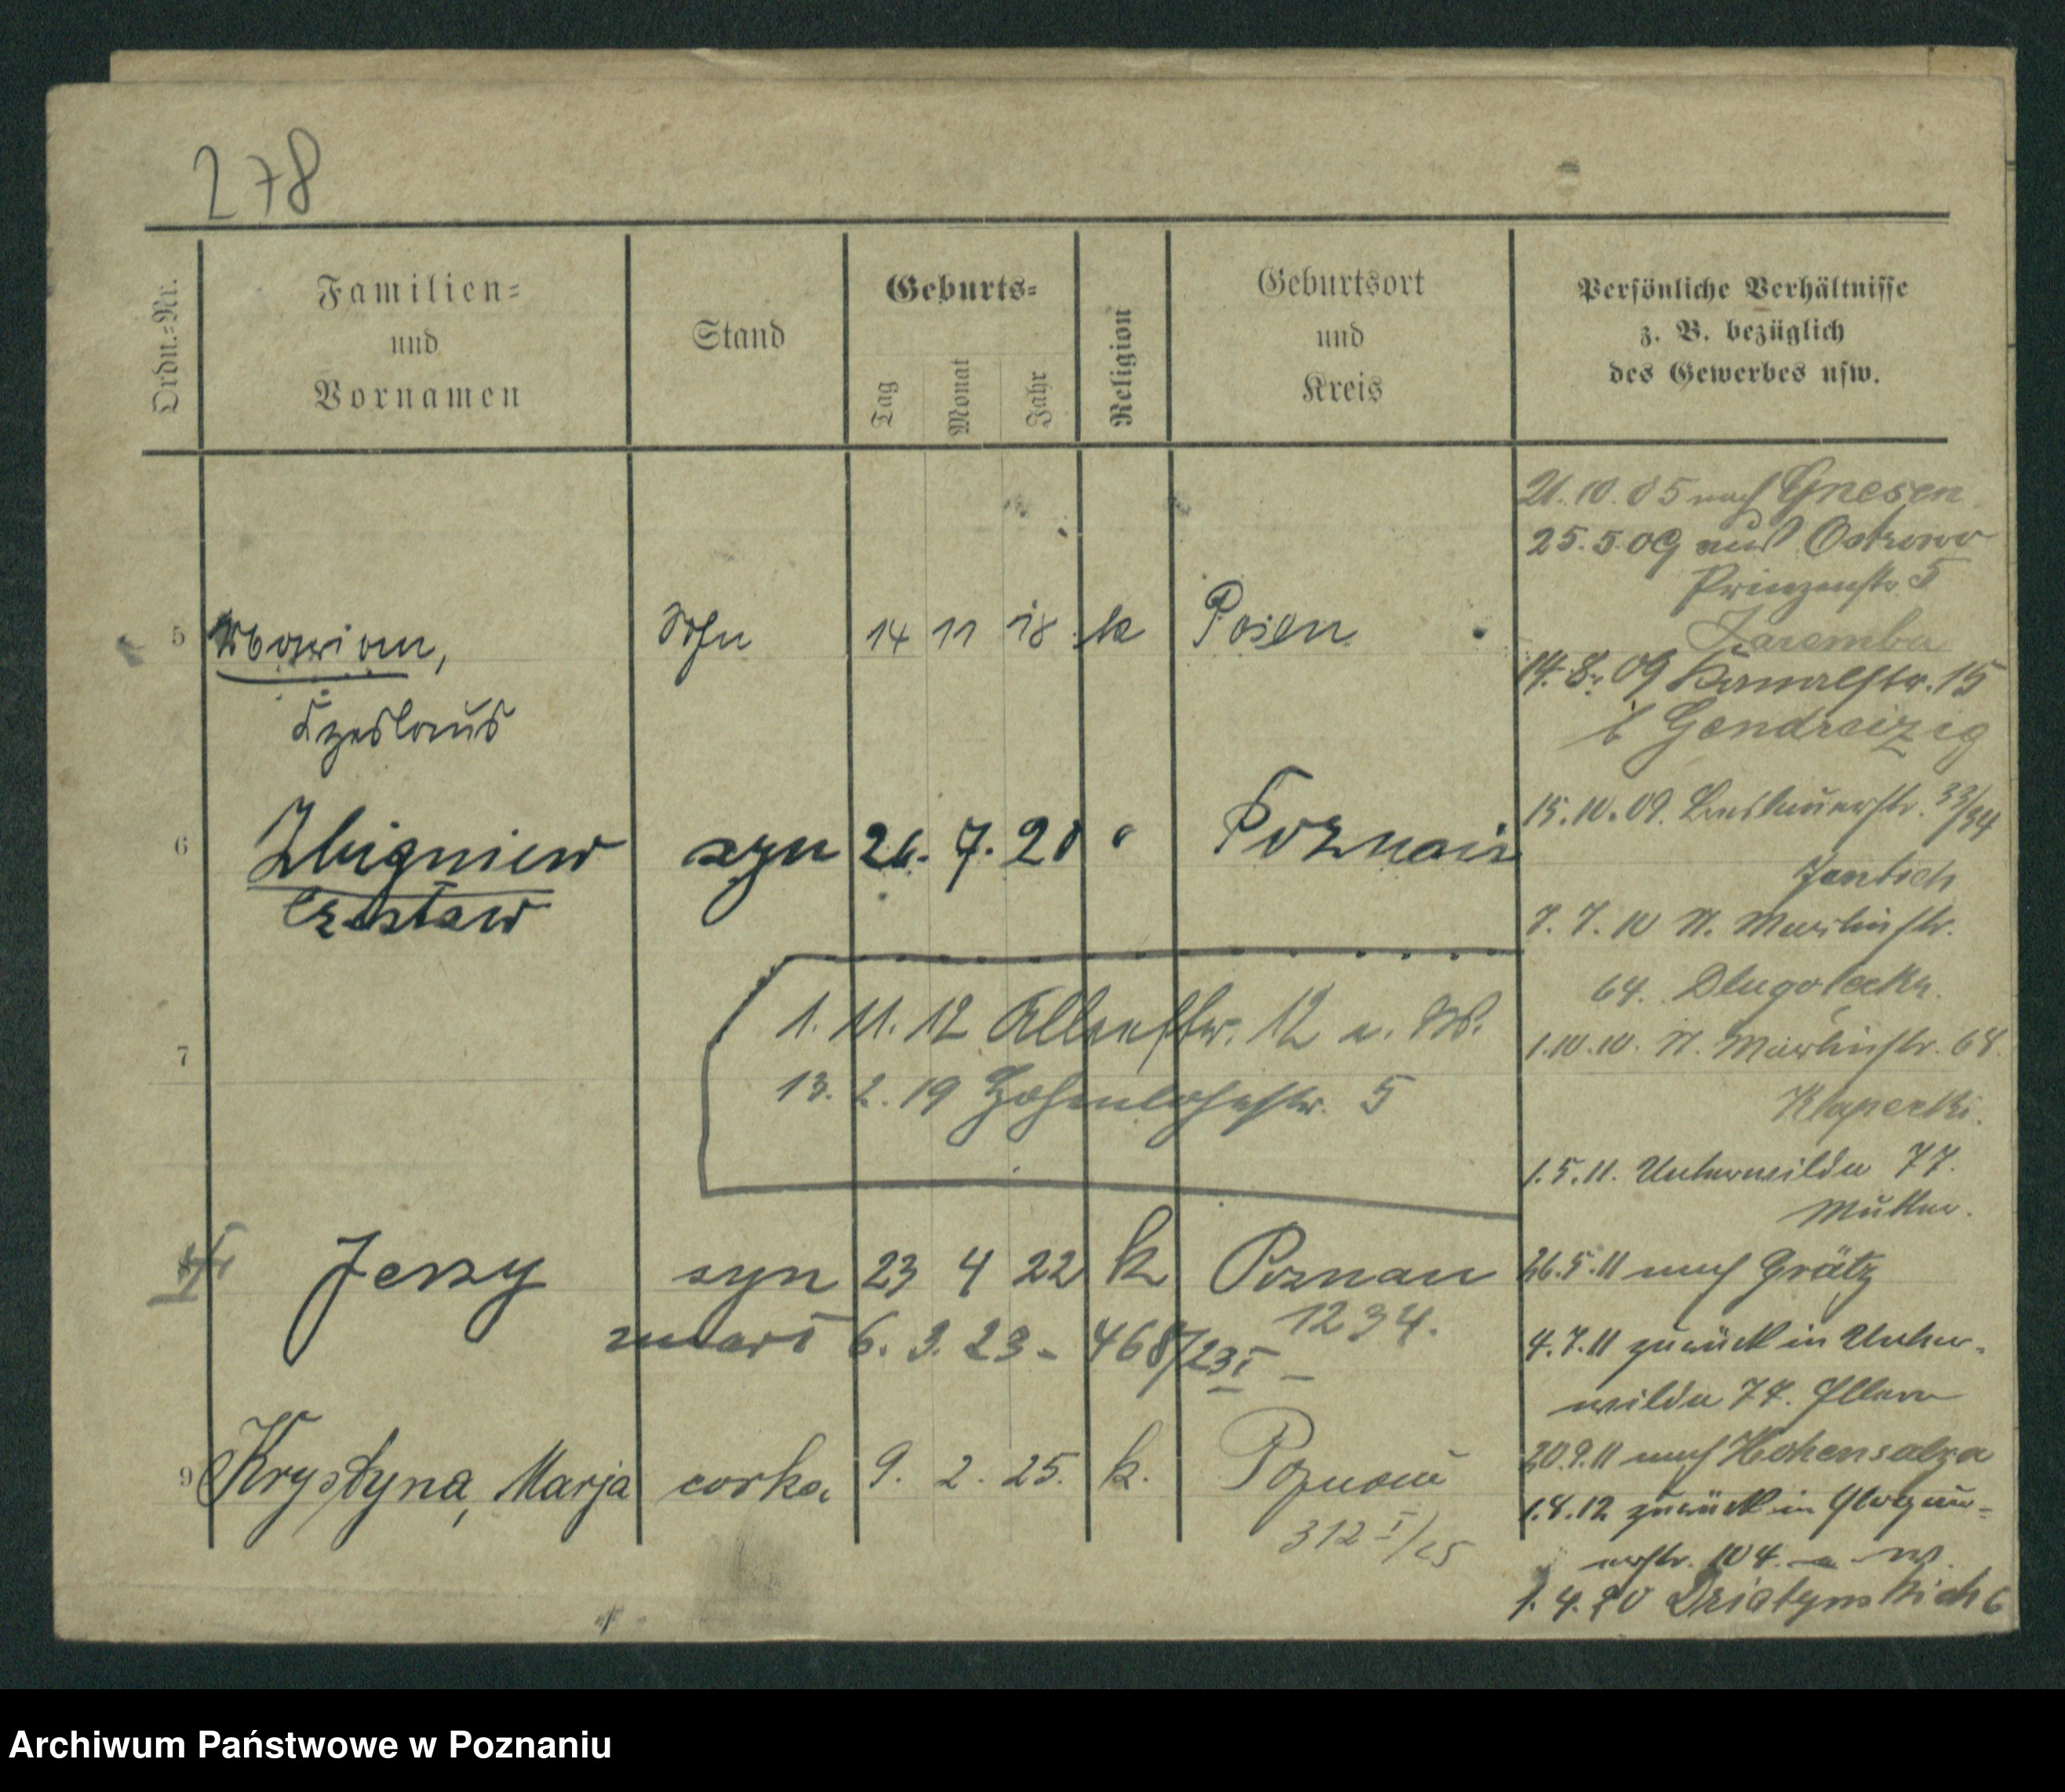 278
Ordn.=Nr.
Familien=
und
Vornamen
Stand
Geburts=
Tag
Monat
Jahr
Religion
Geburtsort
und
Kreis
Persönliche Verhältnisse
z. B. bezüglich
des Gewerbes usw.
5 Marian, Sohn 14 11 18 k Posen
Czeslaus
6 Zbigniew syn 26. 7. 20 " Poznań
Czesław
7
1. 11. 12 12 u. W.
13. 2. 19 Hohenlohestr. 5
Jerzy syn 23 4 22 k Poznan
zmarł 6. 3. 23 - 468/23 I - 1234.
9 Krystyna, Marja corka 9. 2. 25. k. Poznań
312 I/25
21.10.05 nach Gnesen
25.5.09 aus Ostrowo
Prinzenstr 5
Zaremba
14.8.09 Kanalstr. 15
b
15.10.09. 33/34
Jentsch
7. 7. 10 St. Martinstr.
64. Dlugolecka.
1.10.10. St. Martinstr. 68
1.5.11. Unterwilda 77.
Mutter.
26.5.11 nach Grätz
4.7.11 zurück in Unter-
wilda 77. Eltern
20.9.11 nach Hohensalza
1.8.12 zurück in Glogau-
erstr. 104.
1.4.20 Działyńskich 6
Archiwum Państwowe w Poznaniu